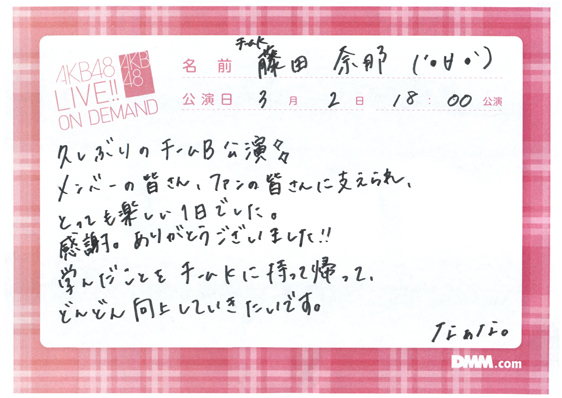 AKB48
LIVE!!
ON DEMAND
AKB
48
チームK
名前 藤田 奈那 (°∀°)
公演日 3月 2日 18:00 公演
久しぶりのチームB公演
メンバーの皆さん、ファンの皆さんに支えられ、
とっても楽しい1日でした。
感謝。ありがとうございました!!
学んだことをチームKに持って帰って、
どんどん向上していきたいです。
なぁな。
DMM.com